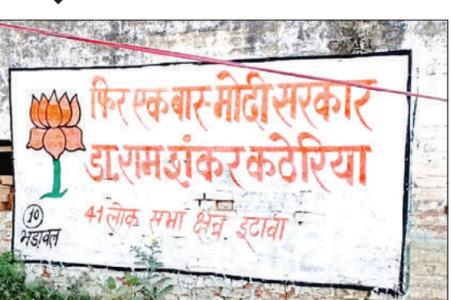 फिर एक बार-मोदी सरकार
डा.राम शंकर कठेरिया
41 लोक सभा क्षेत्र इटावा
10
भडावल